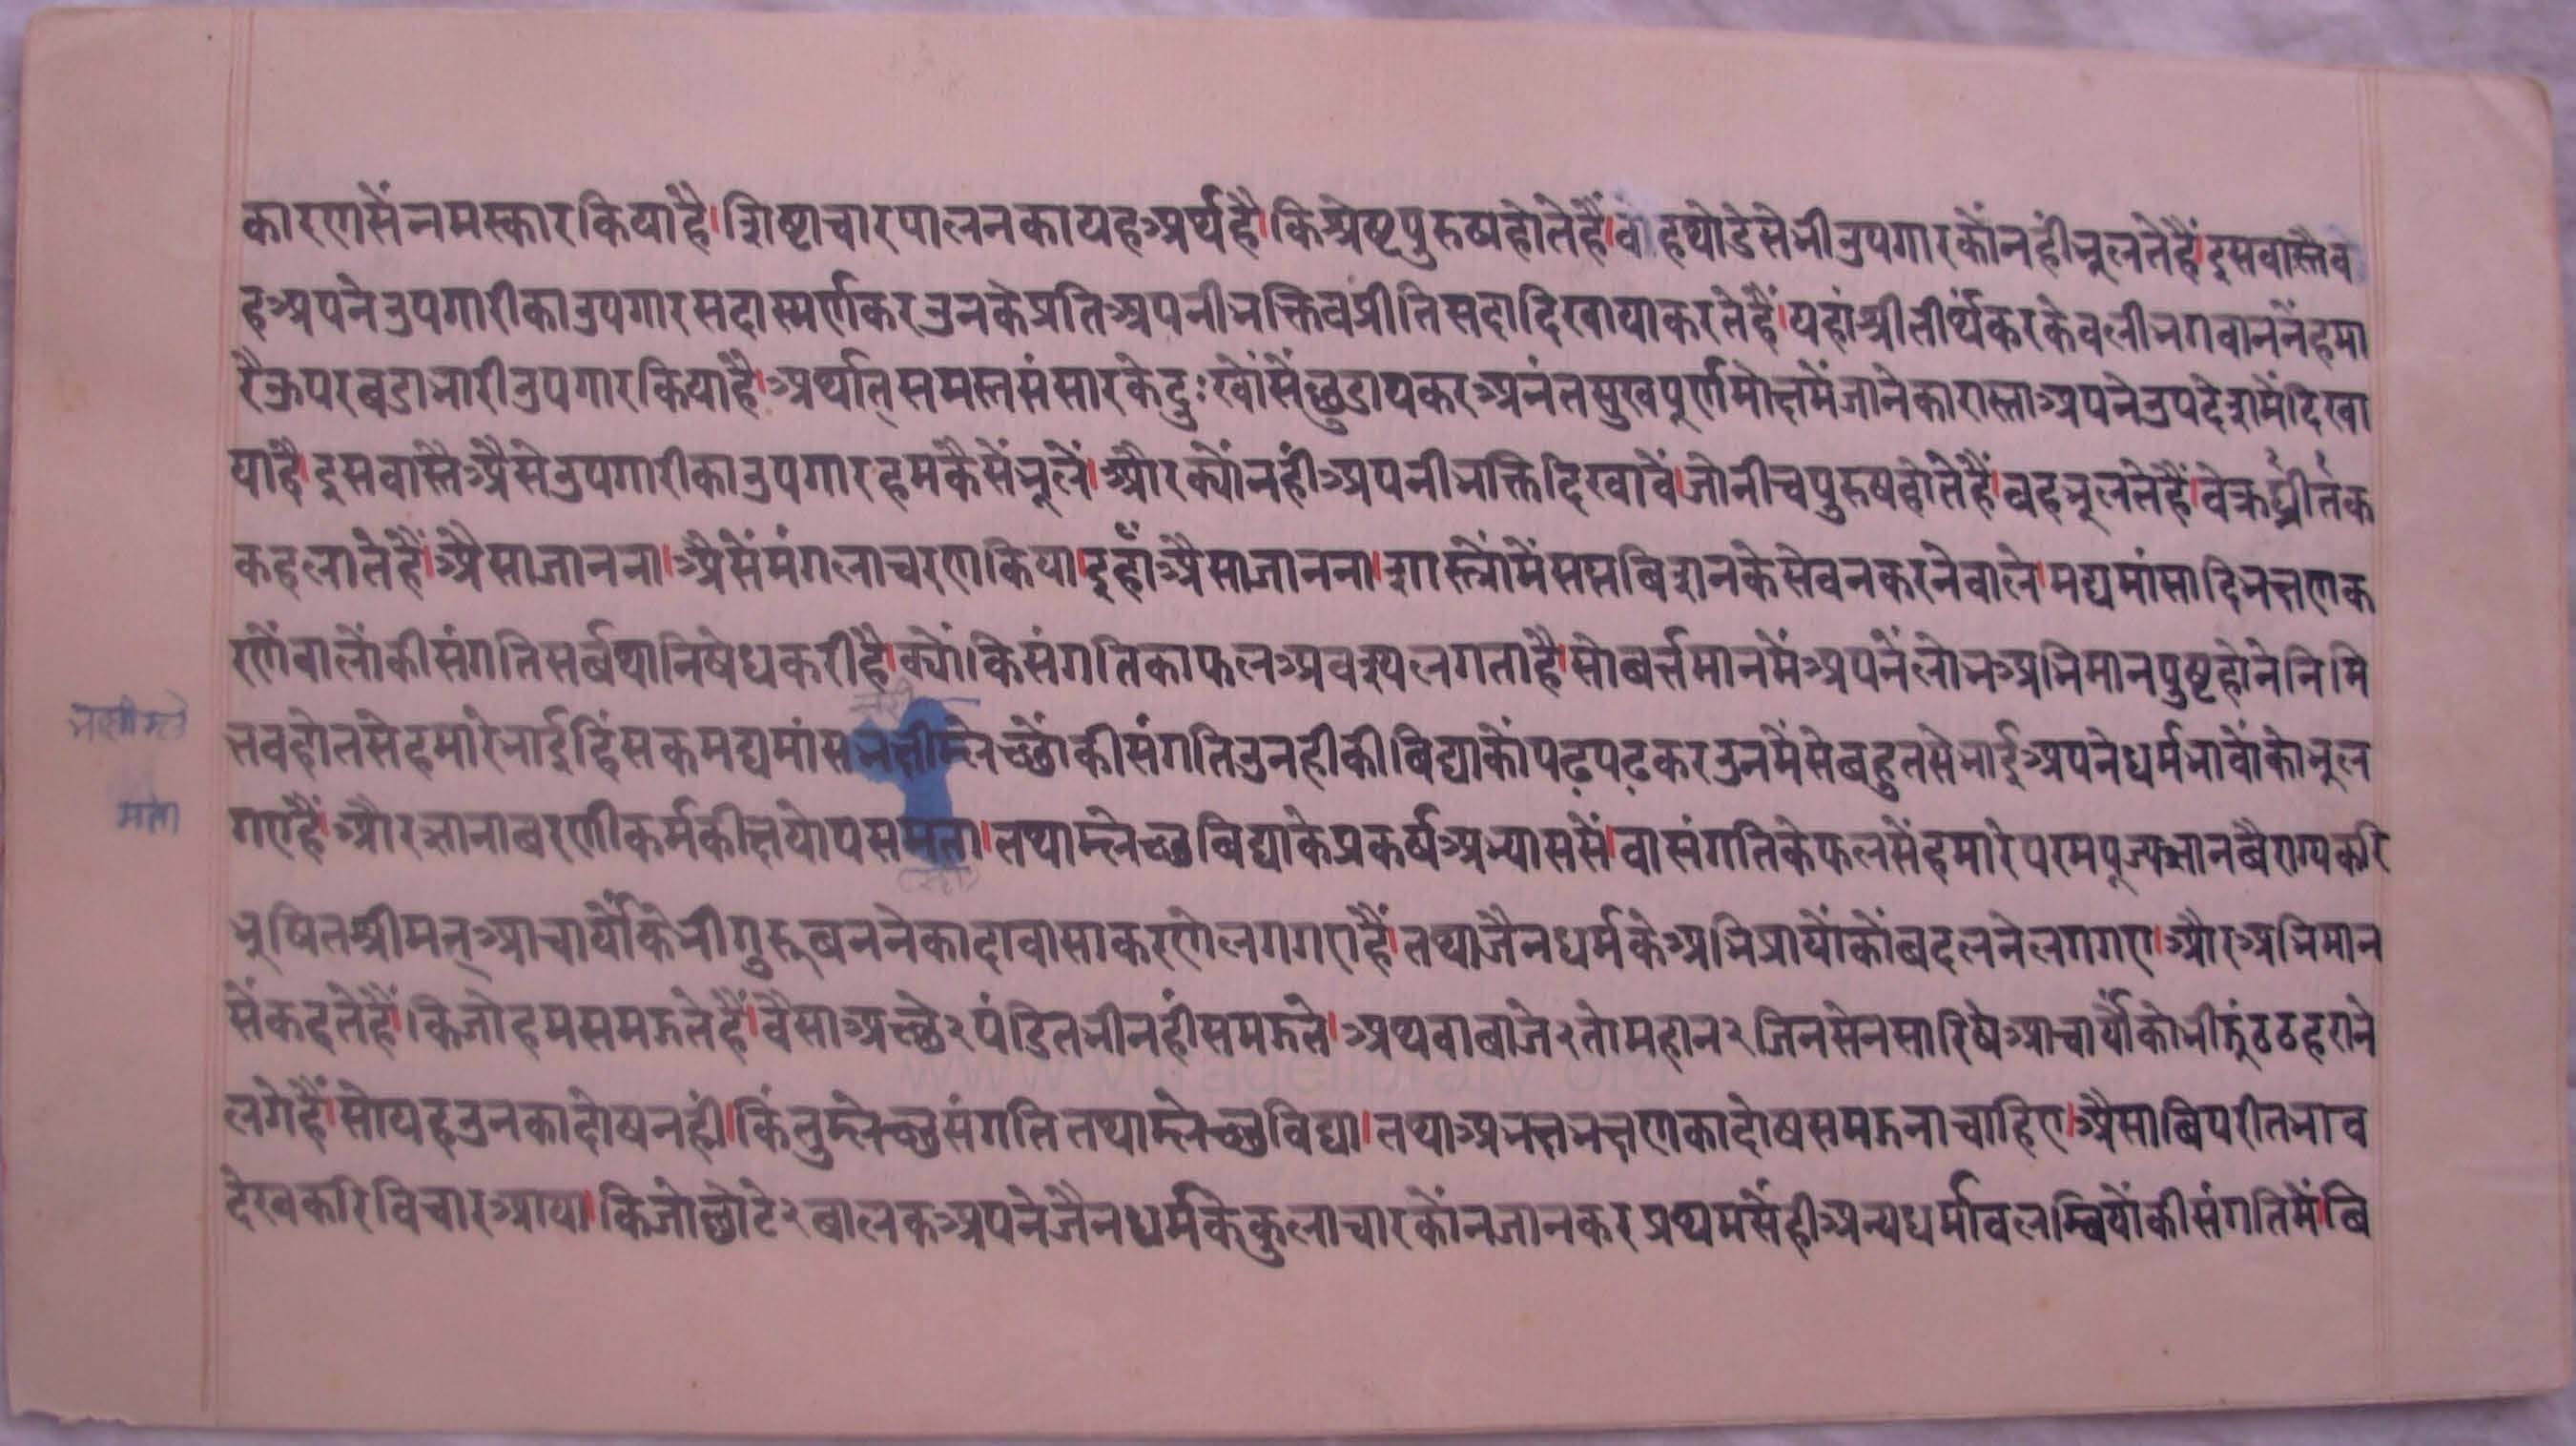 कारणसेंनमस्कारकियाहै।शिष्टाचारपालनकायहअर्थहै।किश्रेष्टपुरुषहोतेहैं।वोहथोडेसेभीउपगारकोंनहींभूलतेहैं।इसवास्तैव
हअपनेउपगारीकाउपगारसदास्मर्णकरउनकेप्रतिअपनीभक्तिवप्रीतिसदादिखायाकरतेहैं।यहांश्रीतीर्थंकरकेवलीभगवाननेंहमा
रैऊपरबडाभारीउपगारकियाहै।अर्थात्समस्तसंसारकेदुःखोंसेंछुडायकरअनंतसुखपूर्णमोक्षमेंजानेकारास्ताअपनेउपदेशमेंदिखा
याहै।इसवास्तैअैसेउपगारीकाउपगारहमकैसेंभूलें।औरक्योंनहींअपनीभक्तिदिखावें।जोनीचपुरुषहोतेहैं।वहभूलतेहैं।वे
कहलातेहैं।अैसाजानना।अैसेंमंगलाचरणकिया।इहाँअैसाजानना।शास्त्रोंमेंसप्तबिशनकेसेवनकरनेवाले।मद्यमांसादिभक्षणक
रणेंवालोंकीसंगतिसर्बथानिषेधकरीहै।क्योंकिसंगतिकाफलअवश्यलगताहै।सोबर्त्तमानमेंअपनेंलोभअभिमानपुष्टहोनेनिमि
त्तवहोतसेहमारेभाईहिंसकमद्यमांसभक्षीम्लेच्छोंकीसंगतिउनहीकीबिद्याकोंपढ़पढ़करउनमेंसेबहुतसेभाईअपनेधर्मभावोंकोभूल
गएहैं।औरज्ञानाबरणीकर्मकीक्षयोपसमता।तथाम्लेच्छबिद्याकेप्रकर्षअभ्याससें।वासंगतिकेफलसेंहमारेपरमपूज्यज्ञानबैराग्यकरि
भूषितश्रीमत्आचार्योंकेभीगुरूबननेकादावासाकरणेलगगएहैं।तथाजैनधर्मकेअभिप्रायोंकोंबदलनेलगगए।औरअभिमान
सेंकहतेहैं।किजोहमसमझतेहैं।वैसाअच्छे२पंडितभीनहींसमझते।अथवाबाजे२तोमहान२जिनसेनसारिषेआचार्योंकोभीझूंठठहराने
लगेहैं।सोयहउनकादोषनहीं।किंतुम्लेच्छसंगतितथाम्लेच्छविद्या।तथाअभक्षभक्षणकादोषसमझनाचाहिए।अैसाबिपरीतभाव
देखकरिविचारआया।किजोछोटे२बालकअपनेजैनधर्मकेकुलाचारकोंनजानकरप्रथमसेंहीअन्यधर्मावलम्बियोंकीसंगतिमें।बि
मता